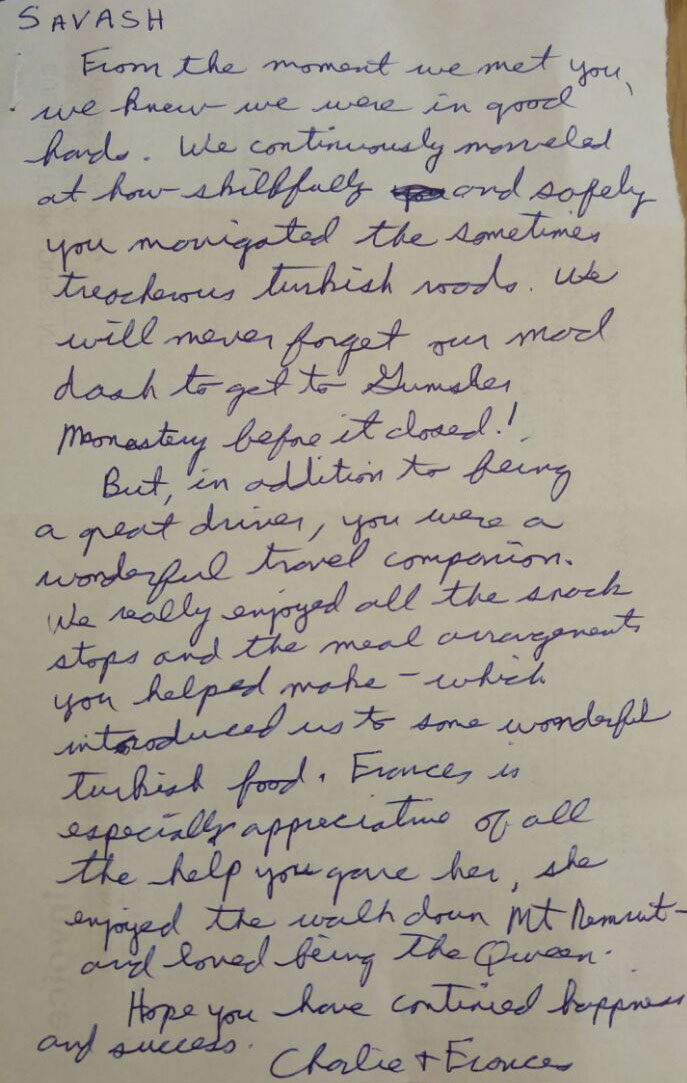 SAVASH
From the moment we met you,
we knew we were in good
hands. We continuously marveled
at how skillfully and safely
you navigated the sometimes
treacherous turkish roads. We
will never forget our mad
dash to get to Gumsler
Monastery before it closed!
But, in addition to being
a great driver, you were a
wonderful travel companion.
We really enjoyed all the snack
stops and the meal arrangements
you helped make - which
introduced us to some wonderful
turkish food. Frances is
especially appreciative of all
the help you gave her, she
enjoyed the walk down Mt Nemrut -
and loved being the Queen.
Hope you have continued happiness
and success.
Charlie + Frances